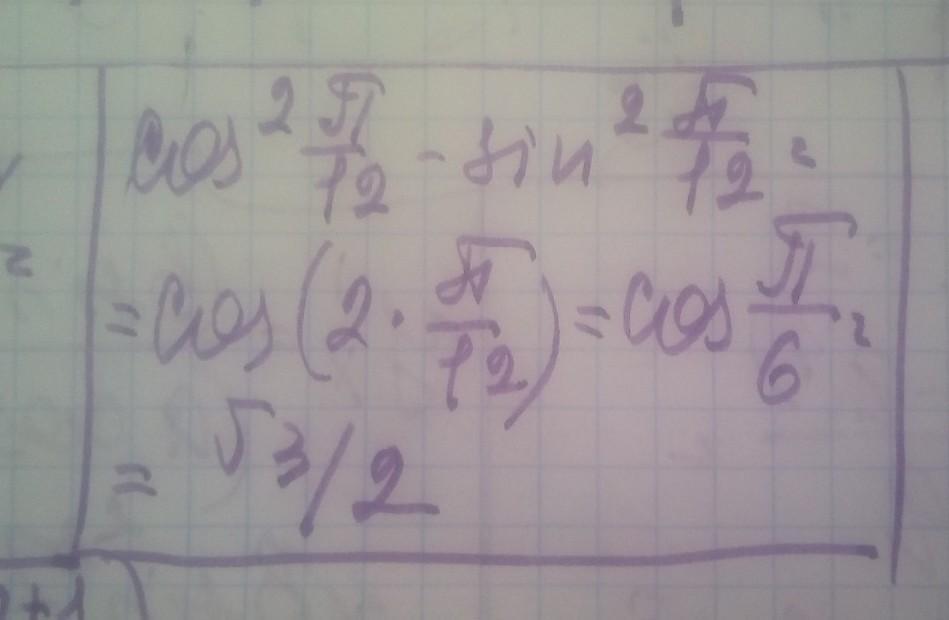 cos² π/12 - sin² π/12 =
= cos(2 · π/12) = cos π/6 =
= √3/2